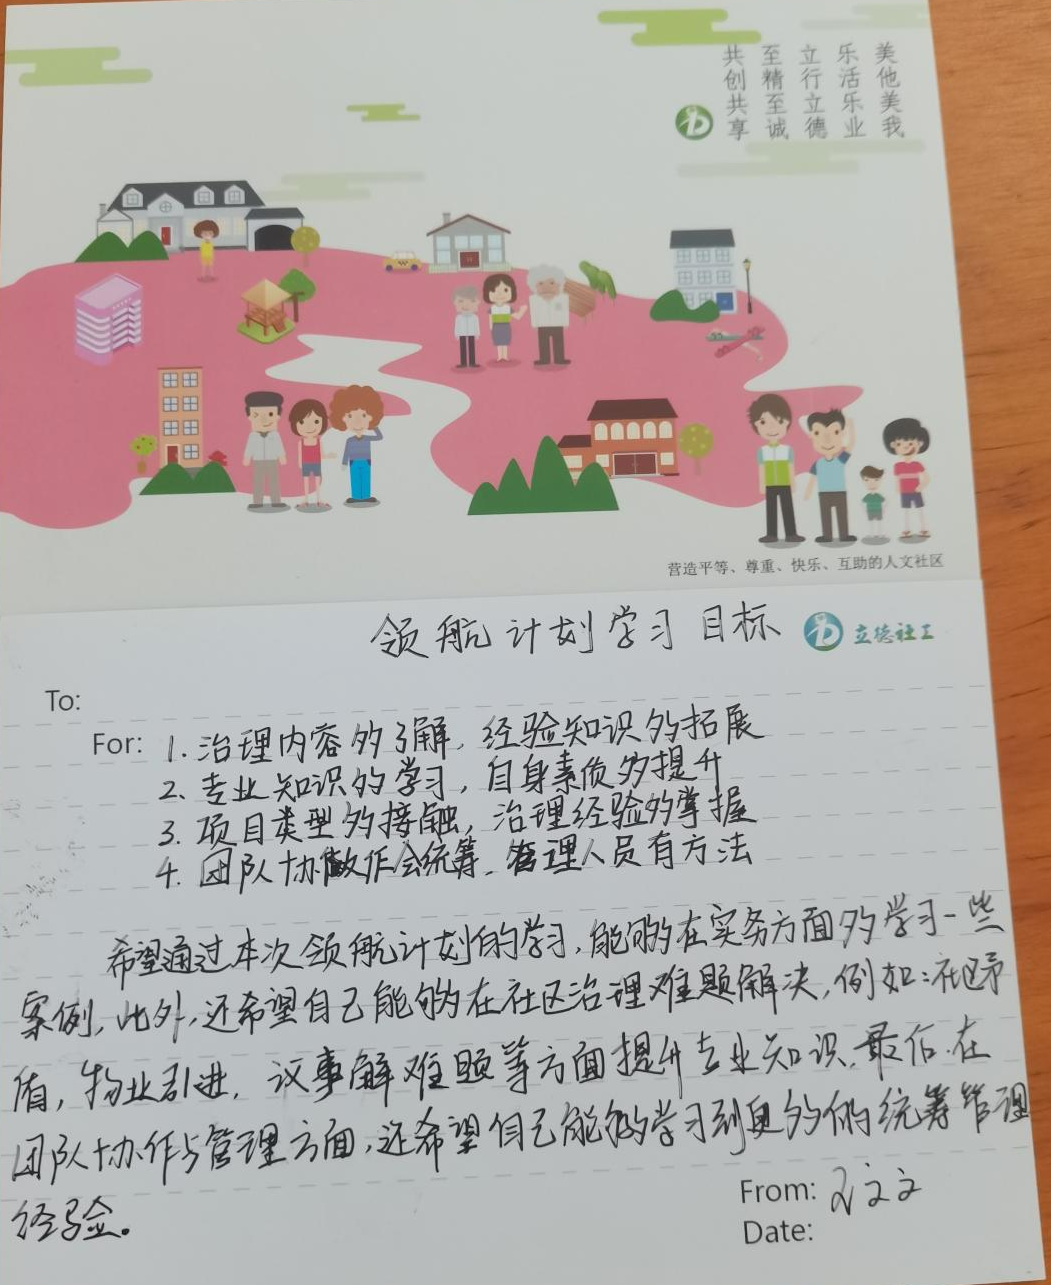 美他美我
乐活乐业
立行立德
至精至诚
共创共享
营造平等、尊重、快乐、互助的人文社区
领航计划学习目标
立德社工
To:
For: 1. 治理内容的了解，经验知识的拓展
2、专业知识的学习，自身素质的提升
3. 项目类型的接触，治理经验的掌握
4. 团队协作会统筹、管理人员有方法
希望通过本次领航计划的学习，能够在实务方面多学习一些
案例，此外，还希望自己能够在社区治理难题解决，例如：社区矛
盾，物业引进，议事解难题等方面提升专业知识，最后，在
团队协作与管理方面，还希望自己能够学习到更多的统筹管理
经验。
From:
Date: